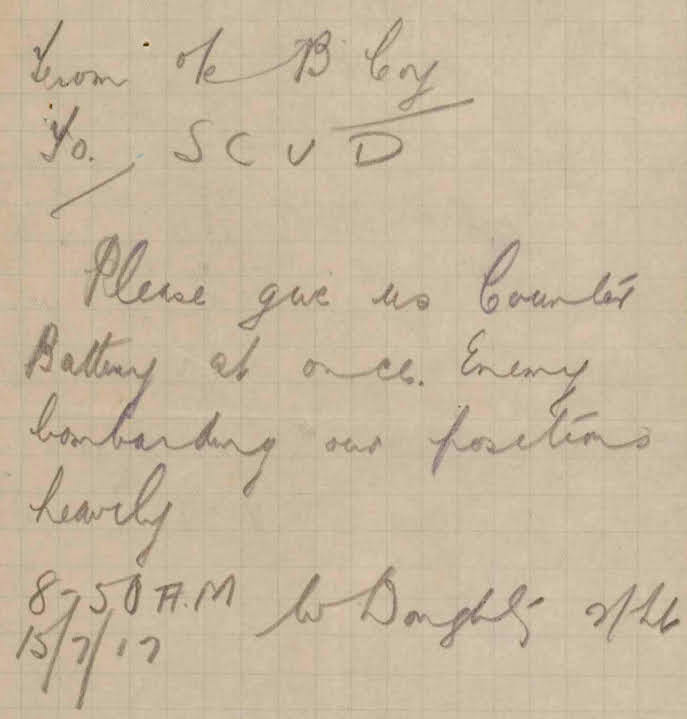 From o/c B Coy
To. SCUD
Please give us Counter
Battery at once. Enemy
bombarding our positions
heavily
8-50 A.M W Doughty 2/Lt
15/7/17